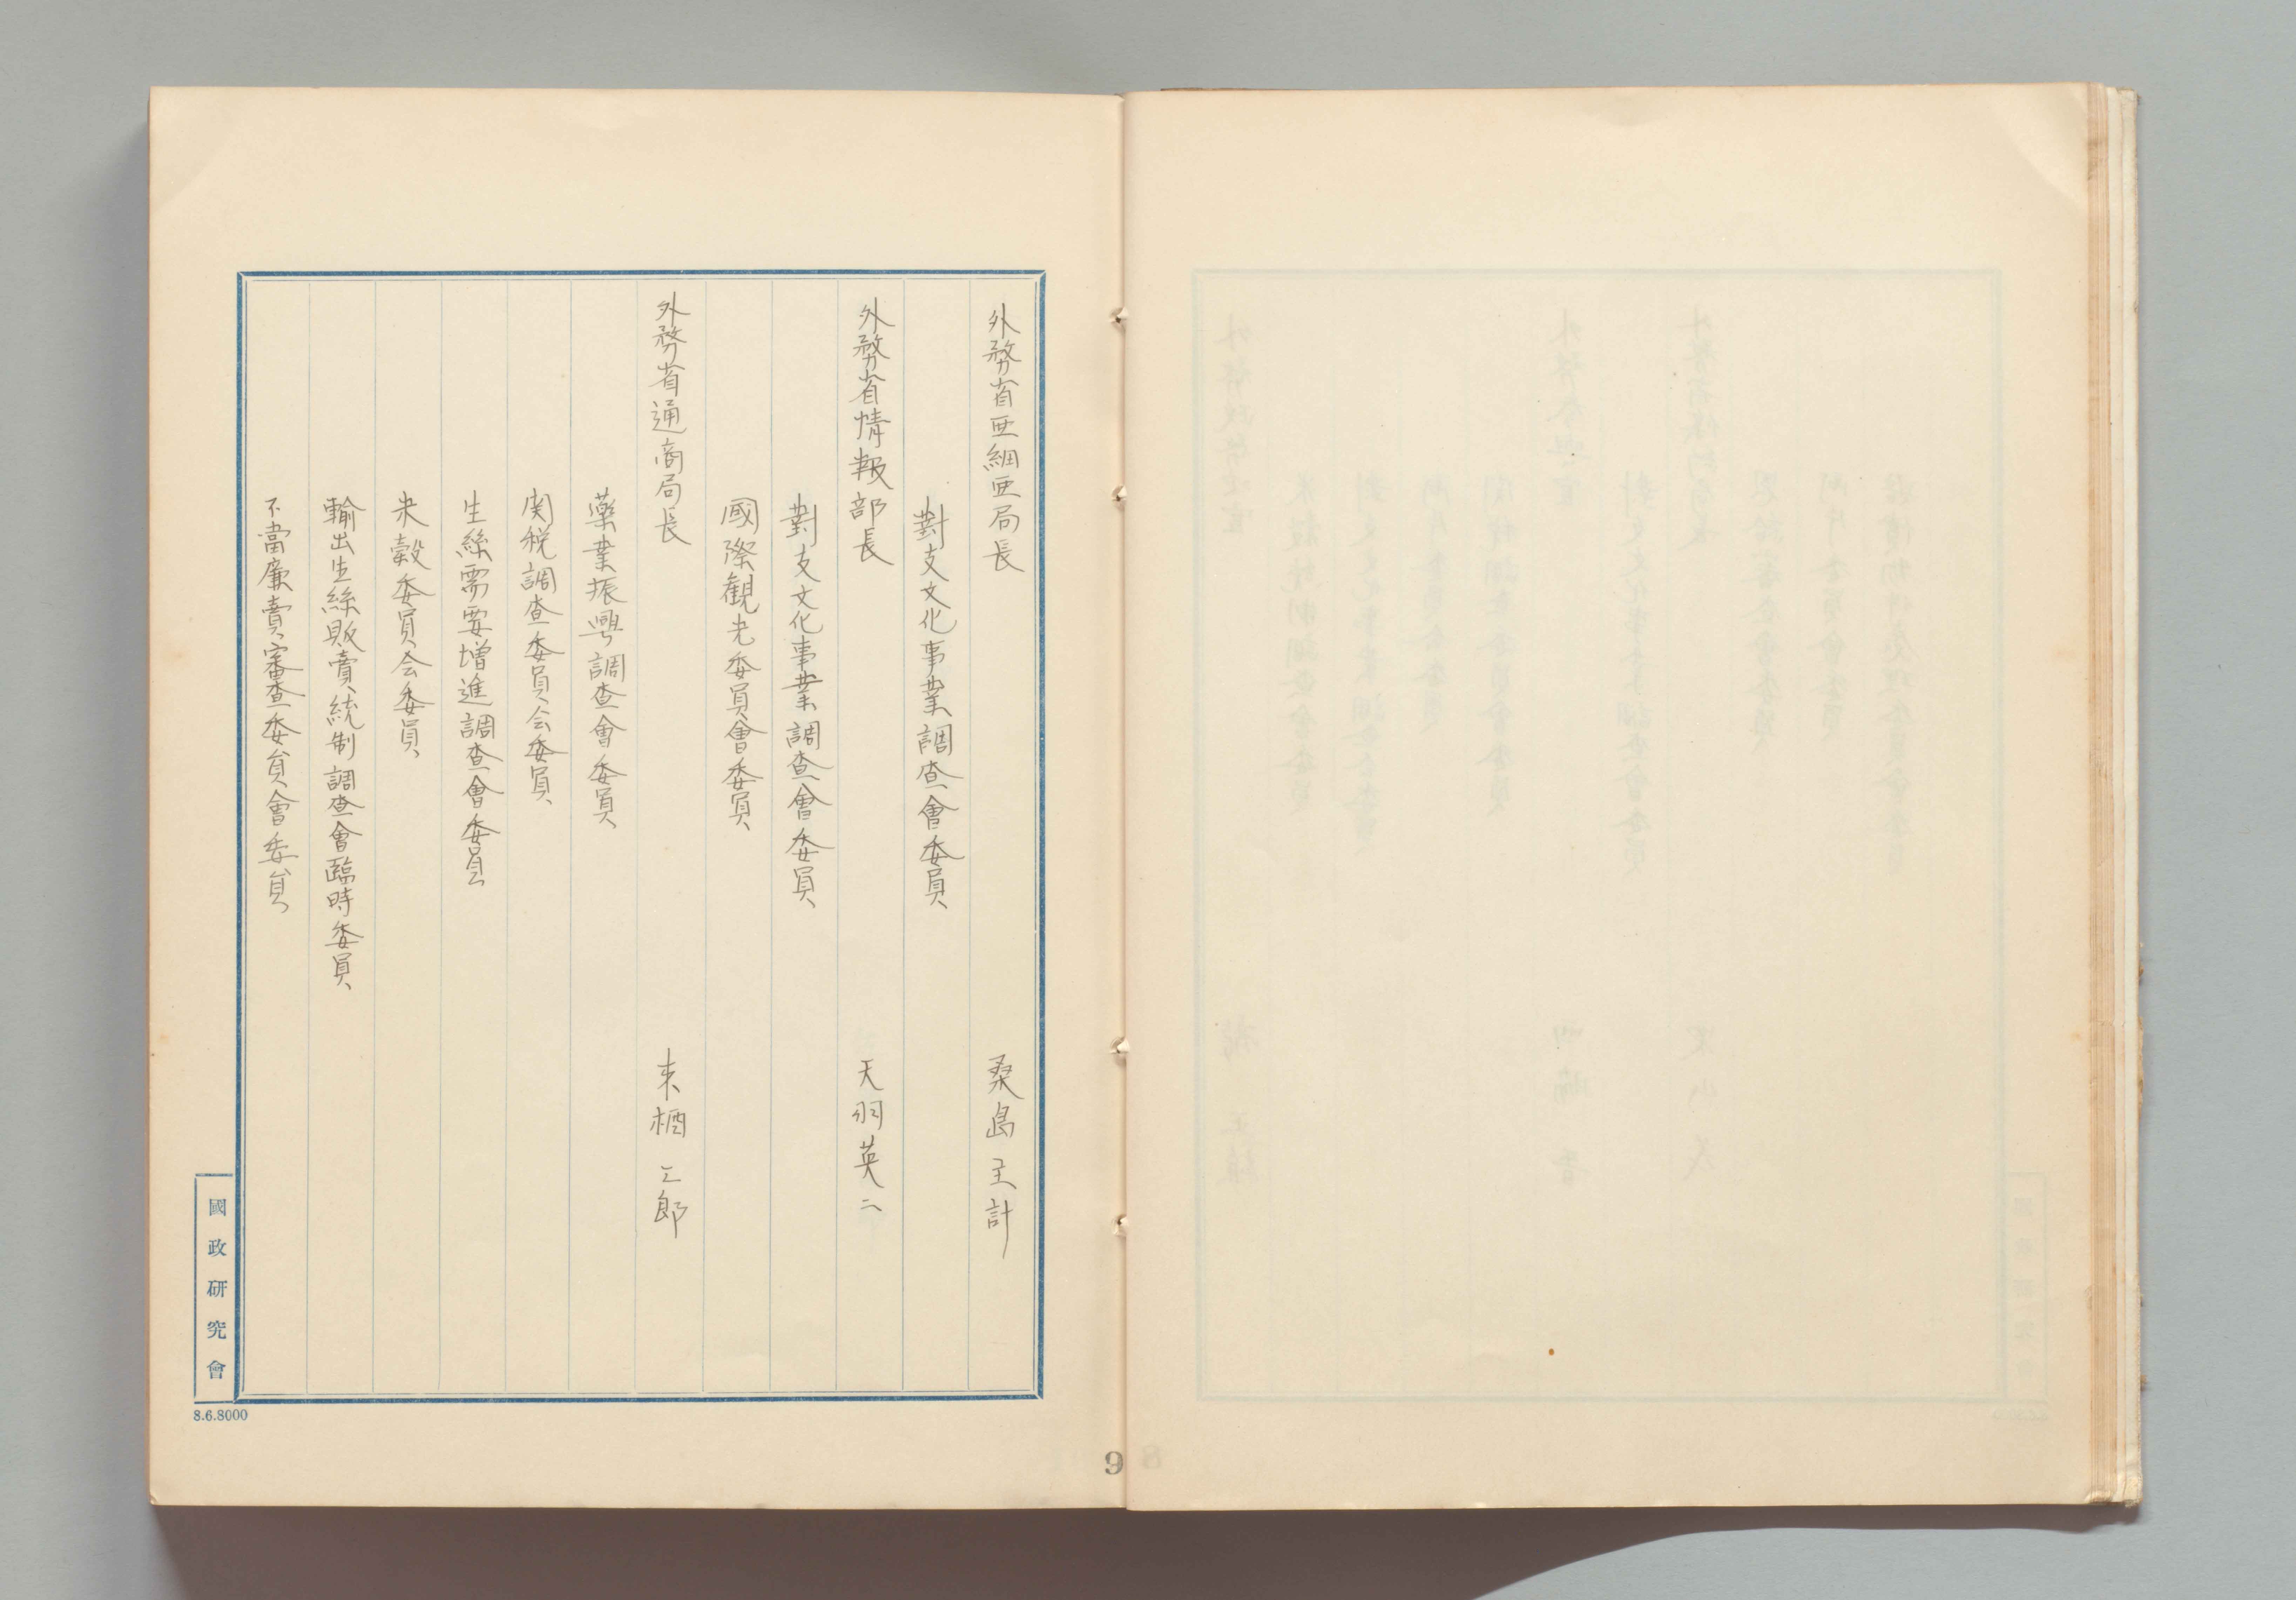 外務省亜細亜局長　桑島主計
對支文化事業調査會委員、
外務省情報部長　天羽英二
對支文化事業調査會委員、
國際観光委員會委員、
外務省通商局長　来栖三郎
薬業振興調査會委員、
関税調査委員会委員、
生絲需要増進調査會委員
米穀委員会委員、
輸出生絲販賣統制調査會臨時委員、
不當廉賣審査委員會委員
國政研究會
8.6.8000
9